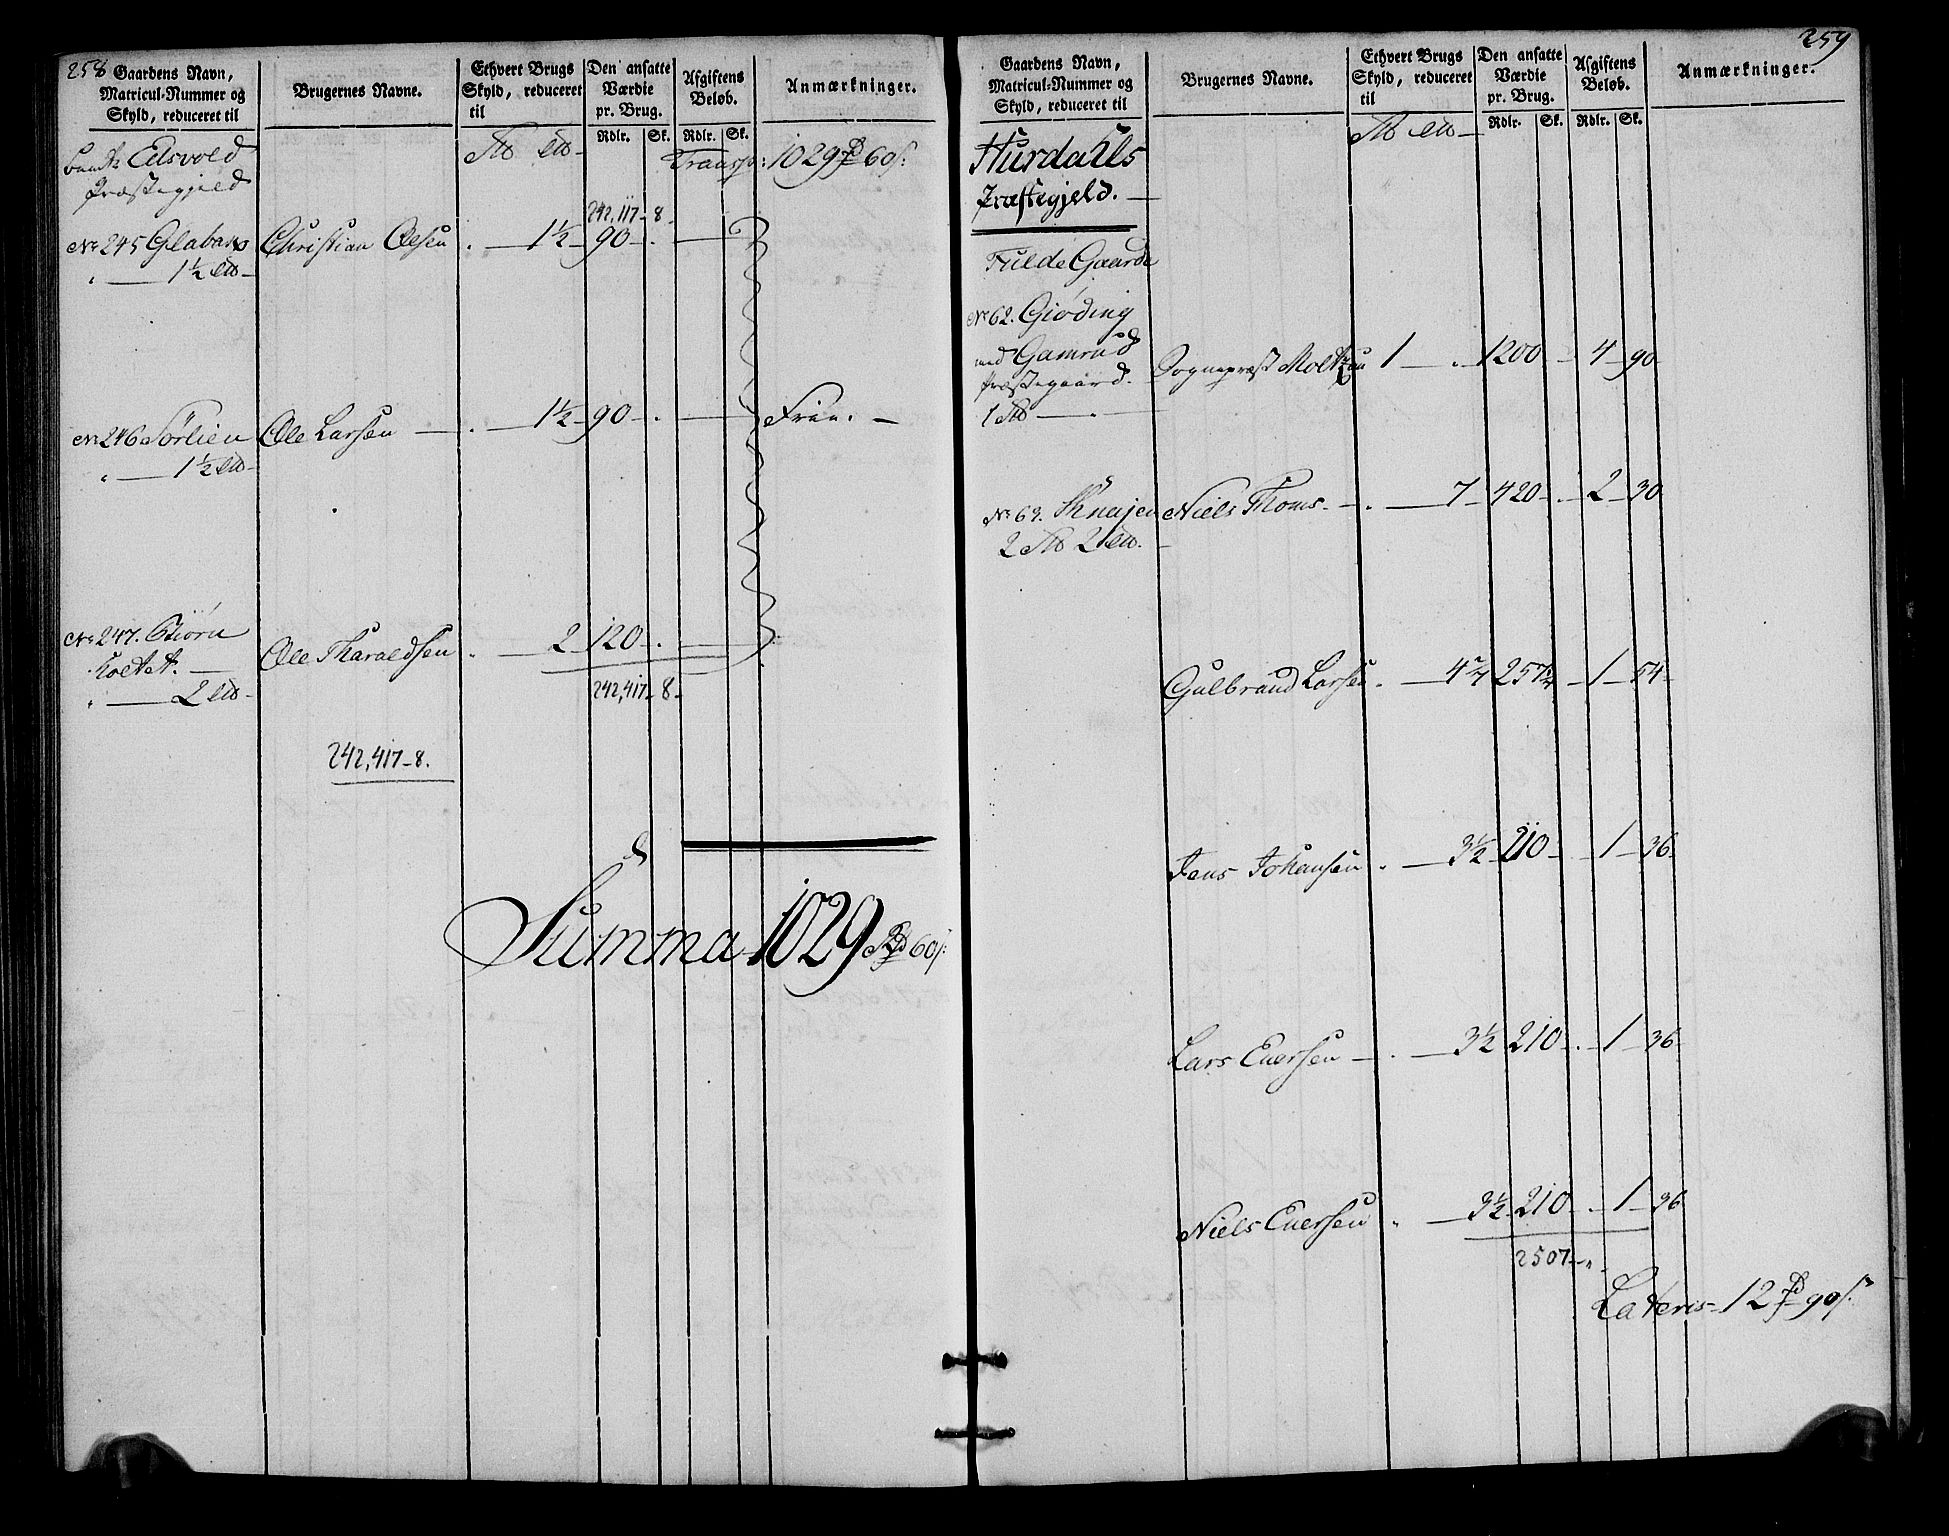 258
Gaardens Navn,
Matricul-Nummer og
Skyld, reduceret til
Brugernes Navne.
Ethvert Brugs
Skyld, reduceret
til
Den ansatte
Værdie
pr. Brug.
Rdlr. Sk.
Afgiftens
Beløb.
Rdlr. Sk.
Anmærkninger.
Eidsvold
Præstegjeld
Transp: 1029 Rd 60 s:
242,117-8
No 245 Glabak Christian Olsen 1½ 90
1½
No 246 Sørlien Ole Larsen 1½ 90 Frie.
1½
No 247. Biørn
holtet. Ole Tharaldsen 2 120
2
242,417-8
242,417-8.
Summa 1029 Rd 60 s:
259
Gaardens Navn,
Matricul-Nummer og
Skyld, reduceret til
Brugernes Navne.
Ethvert Brugs
Skyld, reduceret
til
Den ansatte
Værdie
pr. Brug.
Rdlr. Sk.
Afgiftens
Beløb.
Rdlr. Sk.
Anmærkninger.
Hurdahls
Præstegjeld.
Fulde Gaarde
No 62. Giøding
med Gamrud
Præstegaard. Sognepræst Moltzau 1 1200 4 90
1
No 63. Niels Thoms 7 420 2 30
2 2
Gulbrand Larsen 4 2/7 257 1/7 1 54
Jens Johansen 3½ 210 1 36
Lars Enersen 3½ 210 1 36
Niels Enersen 3½ 210 1 36
2507
Lateris 12 Rd 90 s.